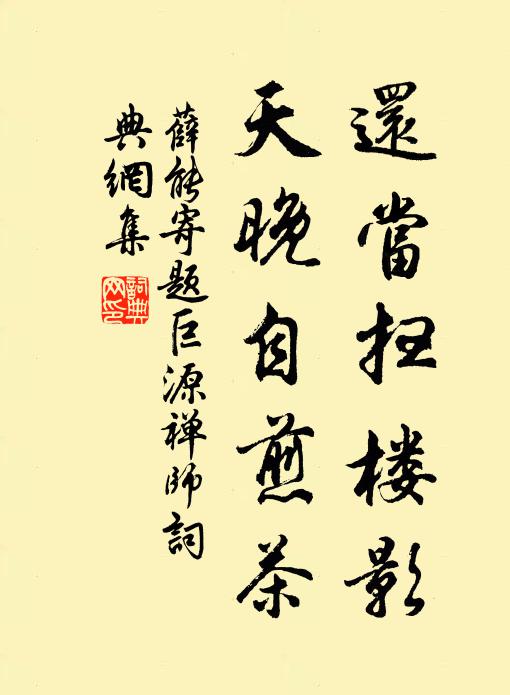 還當扫楼影
天晚自煎茶
薛能寄题巨源禅師詞
典網集
詞典
网印